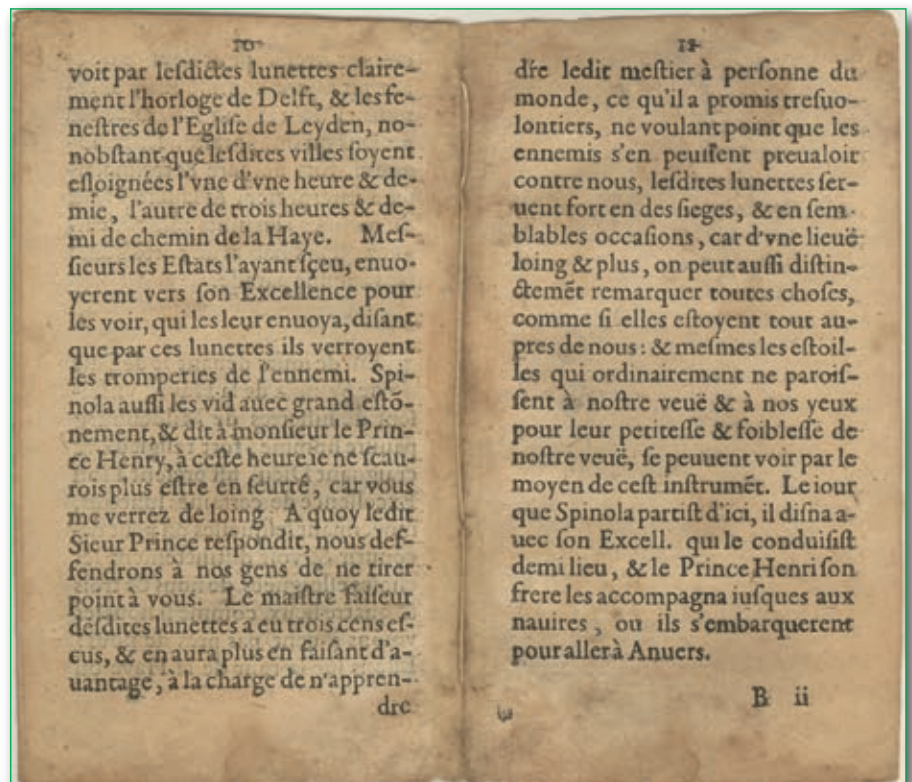 10
voit par leſdictes lunettes claire-
ment l'horloge de Delft, & les fe-
neſtres de l'Egliſe de Leyden, no-
nobſtant que leſdites villes ſoyent
eſloignées l'vne d'vne heure & de-
mie, l'autre de trois heures & de-
mi de chemin de la Haye. Meſ-
ſieurs les Eſtats l'ayant ſçeu, enuo-
yerent vers ſon Excellence pour
les voir, qui les leur enuoya, diſant
que par ces lunettes ils verroyent
les tromperies de l'ennemi. Spi-
nola auſſi les vid auec grand eſtõ-
nement, & dit à monſieur le Prin-
ce Henry, à ceſte heure ie ne ſcau-
rois plus eſtre en ſeurté, car vous
me verrez de loing. A quoy ledit
Sieur Prince reſpondit, nous deſ-
fendrons à nos gens de ne tirer
point à vous. Le maiſtre faiſeur
deſdites lunettes a eu trois cens eſ-
cus, & en aura plus en faiſant d'a-
uantage, à la charge de n'appren-
dre
11
dre ledit meſtier à perſonne du
monde, ce qu'il a promis treſuo-
lontiers, ne voulant point que les
ennemis s'en peuſſent preualoir
contre nous, leſdites lunettes ſer-
uent fort en des ſieges, & en ſem-
blables occaſions, car d'vne lieuë
loing & plus, on peut auſſi diſtin-
ctemẽt remarquer toutes choſes,
comme ſi elles eſtoyent tout au-
pres de nous: & meſmes les eſtoil-
les qui ordinairement ne paroiſ-
ſent à noſtre veuë & à nos yeux
pour leur petiteſſe & foibleſſe de
noſtre veuë, ſe peuuent voir par le
moyen de ceſt inſtrumẽt. Le iour
que Spinola partiſt d'ici, il diſna a-
uec ſon Excell. qui le conduiſiſt
demi lieu, & le Prince Henri ſon
frere les accompagna iuſques aux
nauires, ou ils s'embarquerent
pour aller à Anuers.
B ii